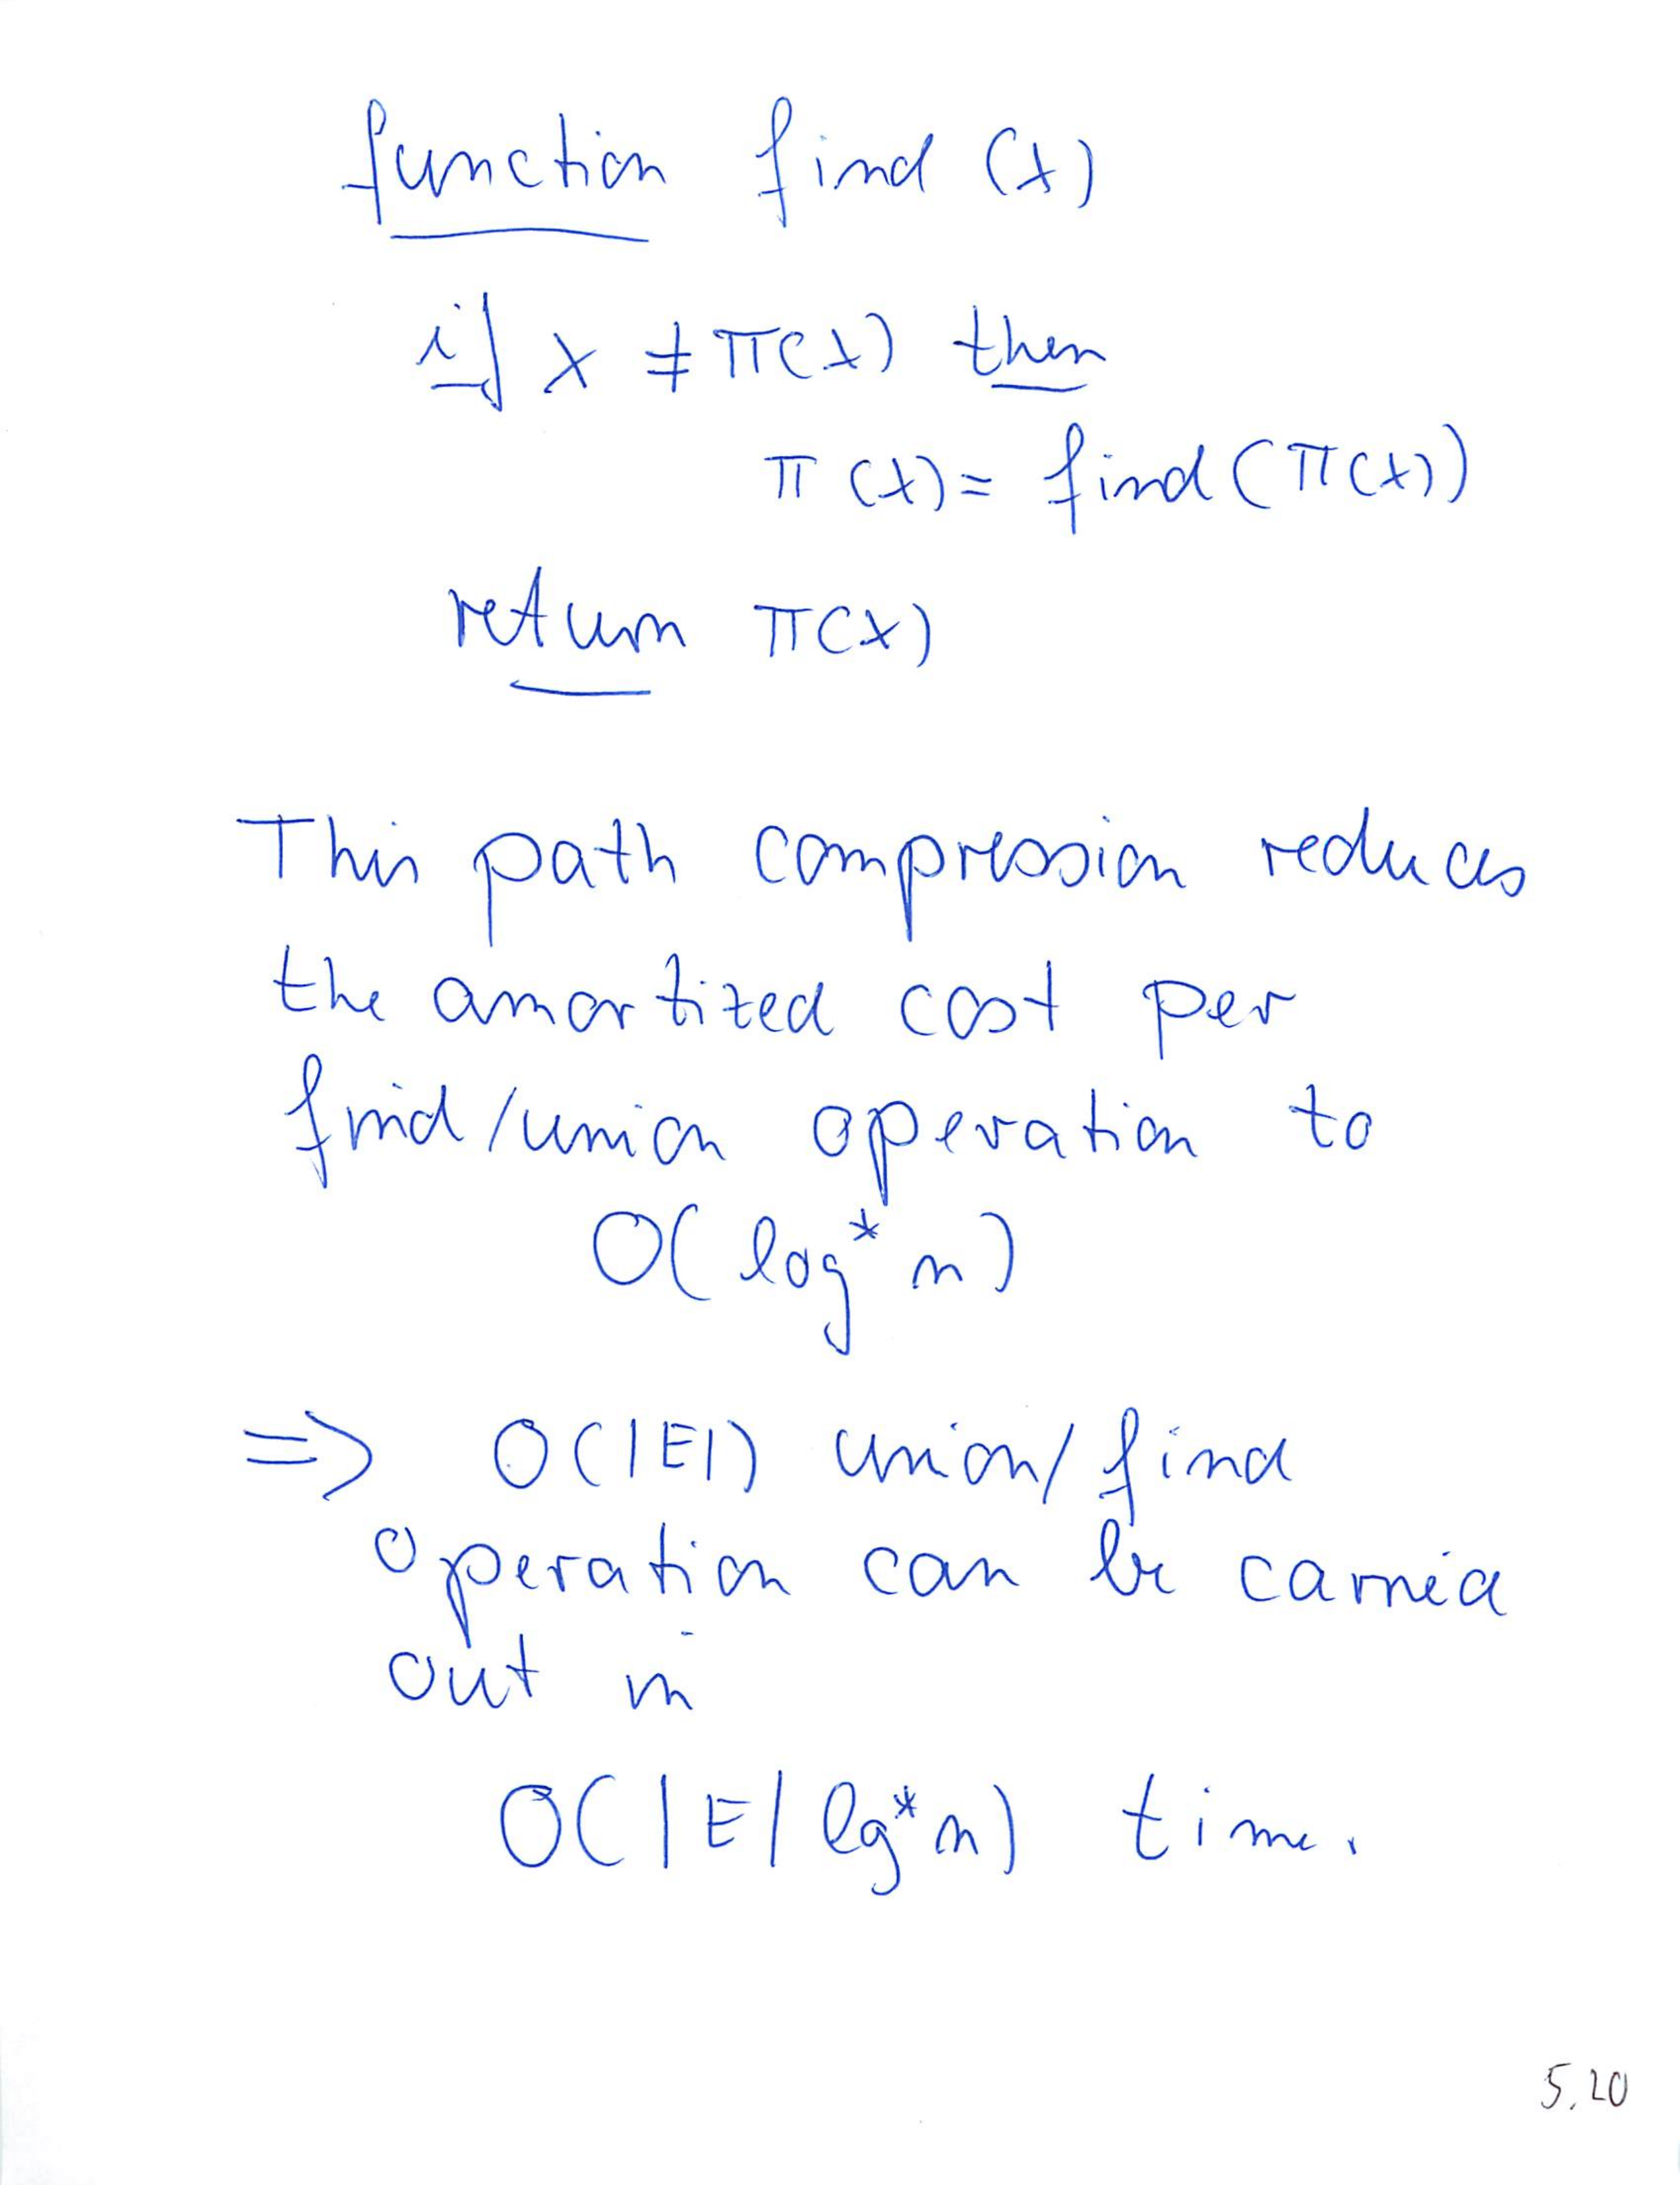 function find (x)
if x ≠ π(x) then
π(x) = find (π(x))
return π(x)
This path compression reduces
the amortized cost per
find/union operation to
O( log* n )
=> O(|E|) union/find
operation can be carried
out in
O(|E| lg* n) time.
5.20